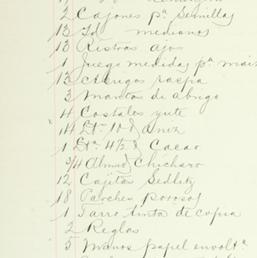 2 Cajones pa Semillas
13 Id medianos
13 Ristras ajos
1 Juego medidas pa maiz
13
3 Mantas de abrigo
4 Costales yute
14
1 Cacao
3/4 Almud Chicharo
12 Cajitas Sedlitz
18 Parches porosos
1 Tarro tinta de copia
2 Reglas
5 Manos papel envolta